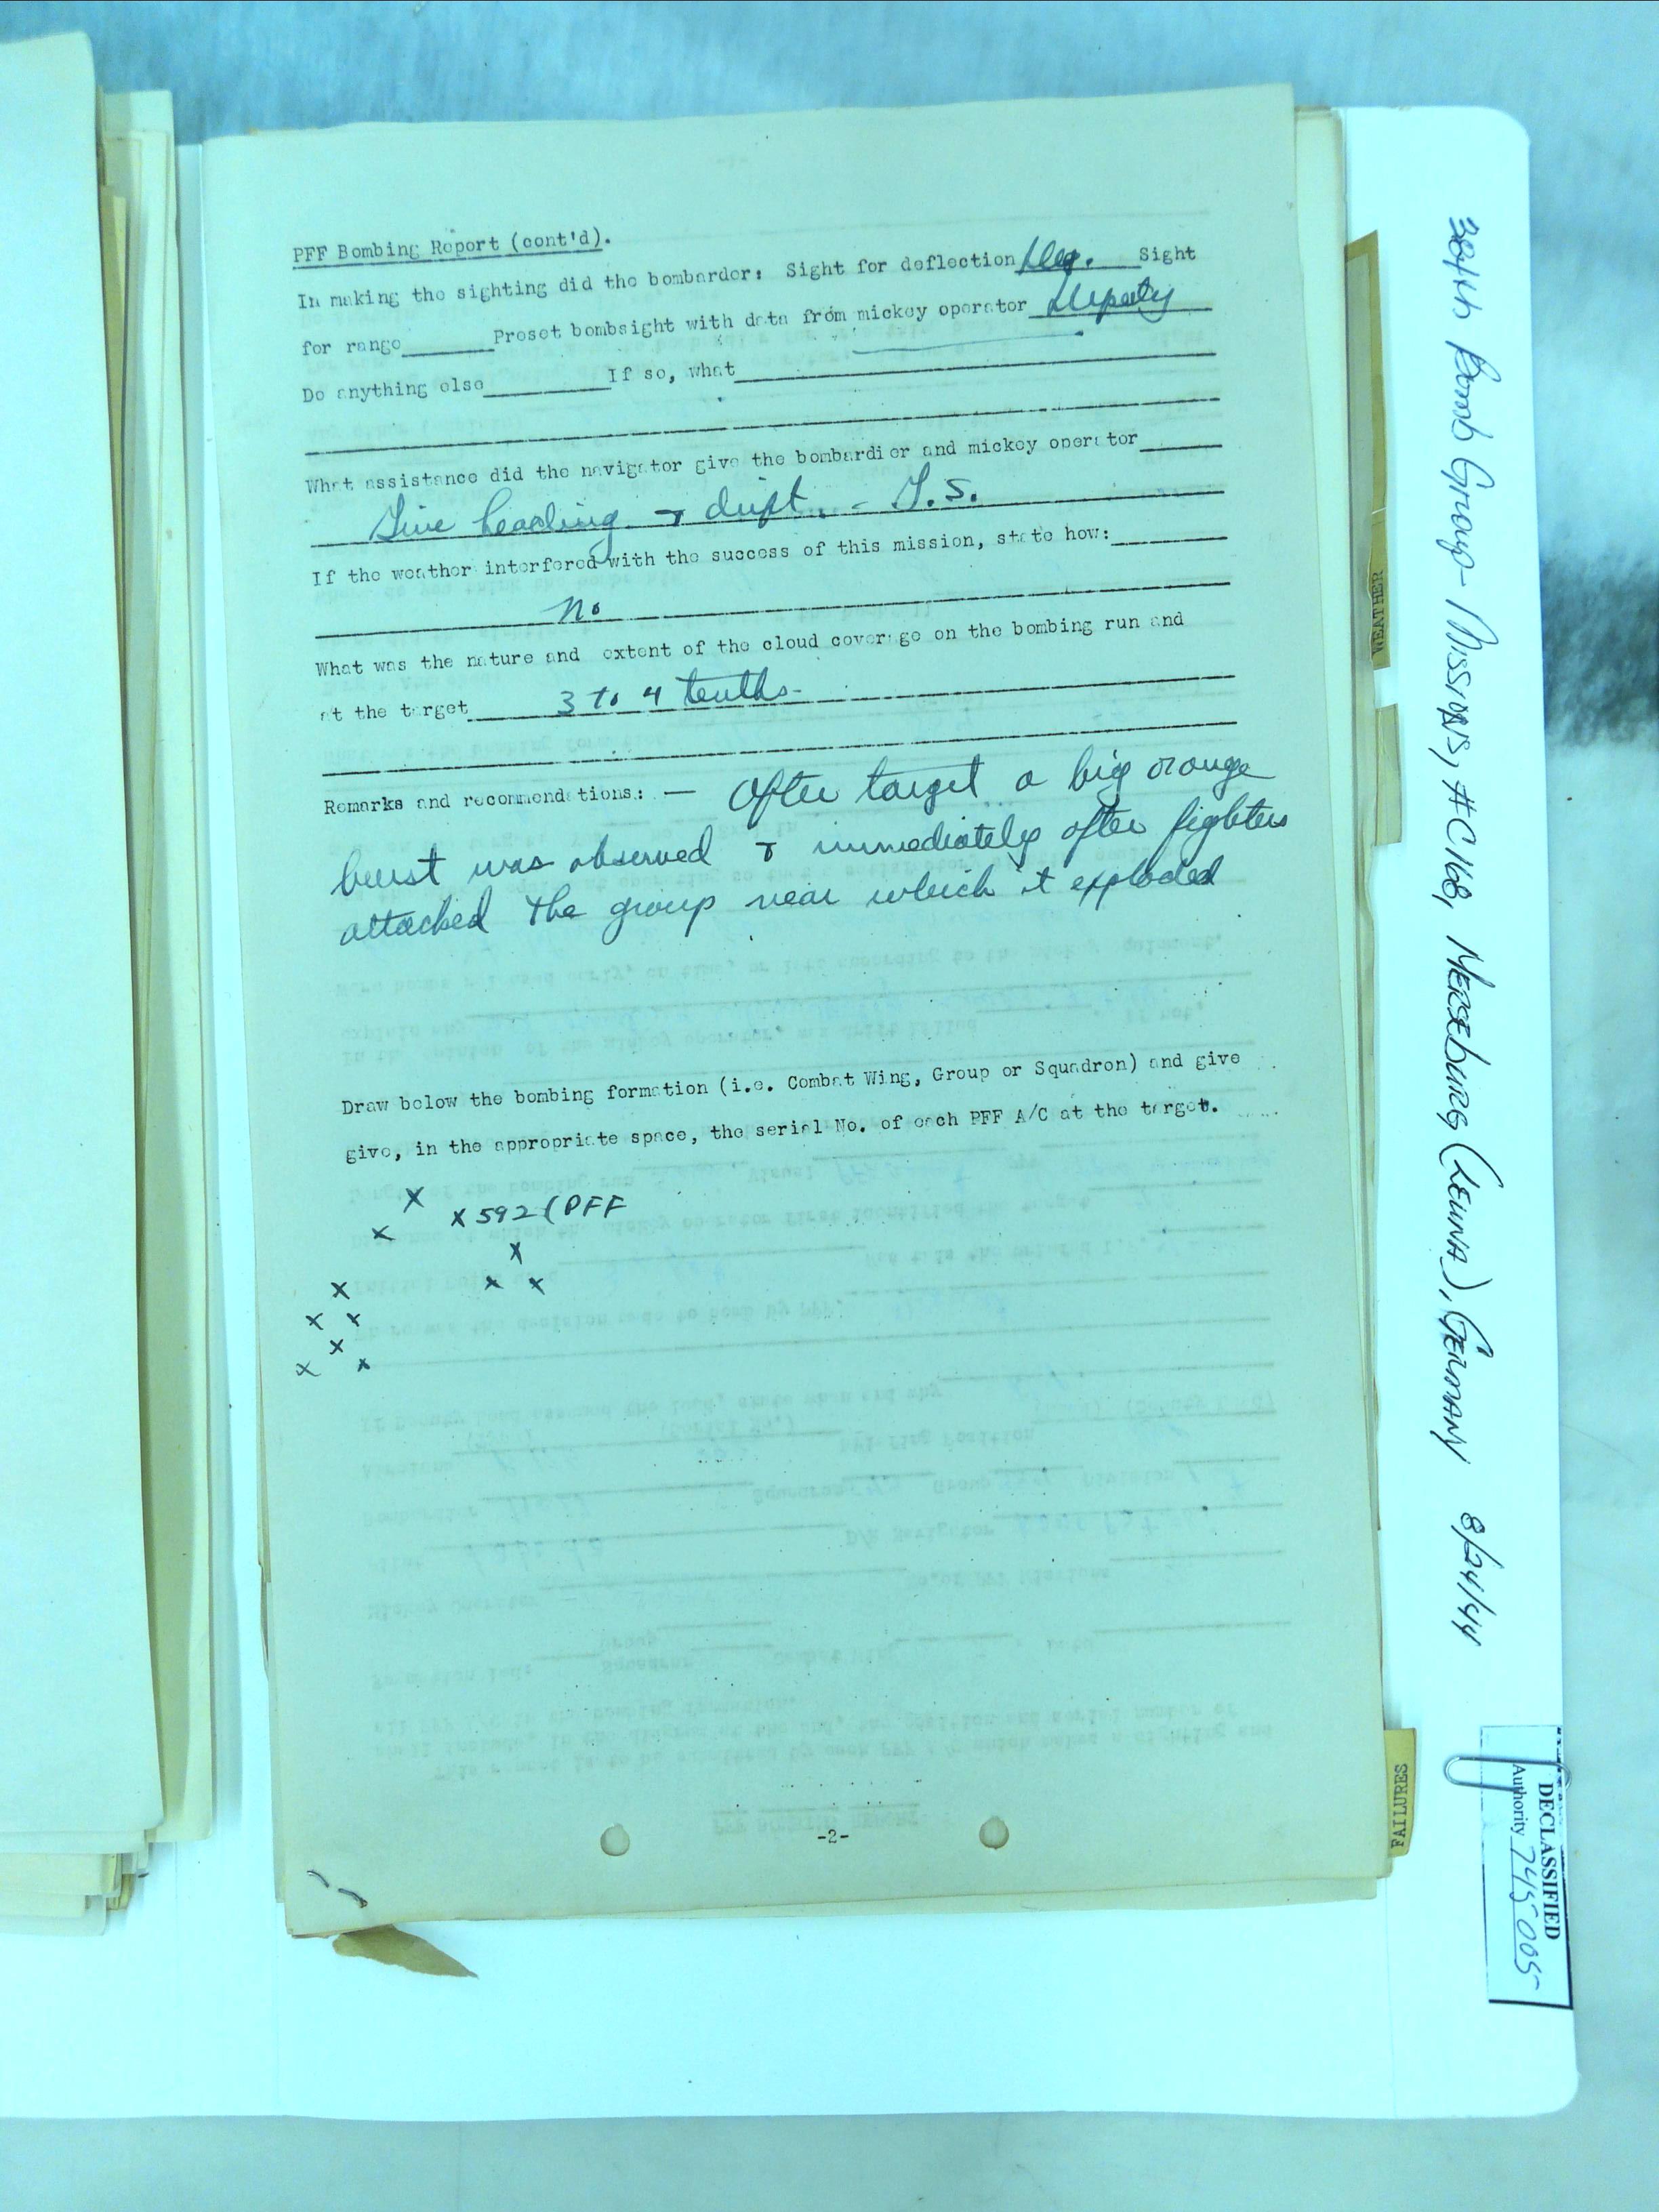 PFF Bombing Report (cont'd).
In making the sighting did the bombarder: Sight for deflection Sight
for range Preset bombsight with data from mickey operator Deputy
Do anything else If so, what
What assistance did the navigator give the bombardier and mickey operator
Give heading & drift. - T.S.
If the weather interfered with the success of this mission, state how:
No
What was the nature and extent of the cloud coverage on the bombing run and
at the target 3 to 4 tenths-
Remarks and recommendations: — After target a big orange
burst was observed & immediately after fighters
attacked the group near which it exploded
Draw below the bombing formation (i.e. Combat Wing, Group or Squadron) and give
give, in the appropriate space, the serial No. of each PFF A/C at the target.
X
X 592 (PFF
X
X
X X
X
X X
X
X X
-2-
WEATHER
FAILURES
384th Bomb Group - Missions, #C168, Merseburg (Leuna), Germany 8/24/44
DECLASSIFIED
Authority 745005